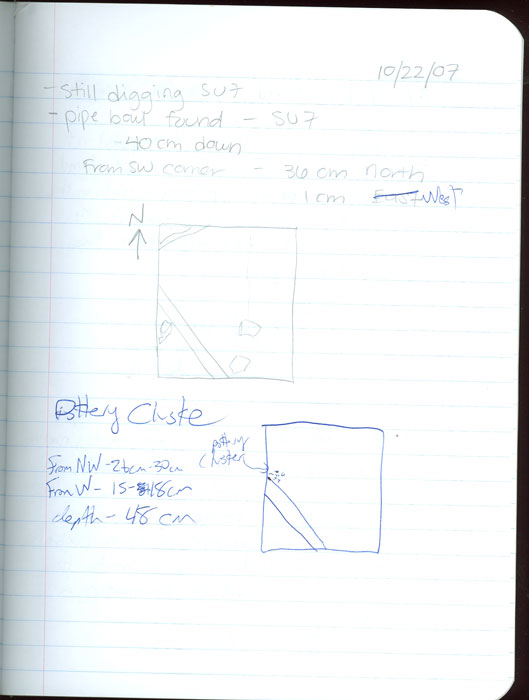 10/22/07
- Still digging SU7
- pipe bowl found - SU7
- 40 cm down
From SW corner - 36 cm north
1 cm East West
N
Pottery Cluste
pottery
cluster
From NW - 26cm - 30cm
From W - 15 - 18cm
depth - 48 cm